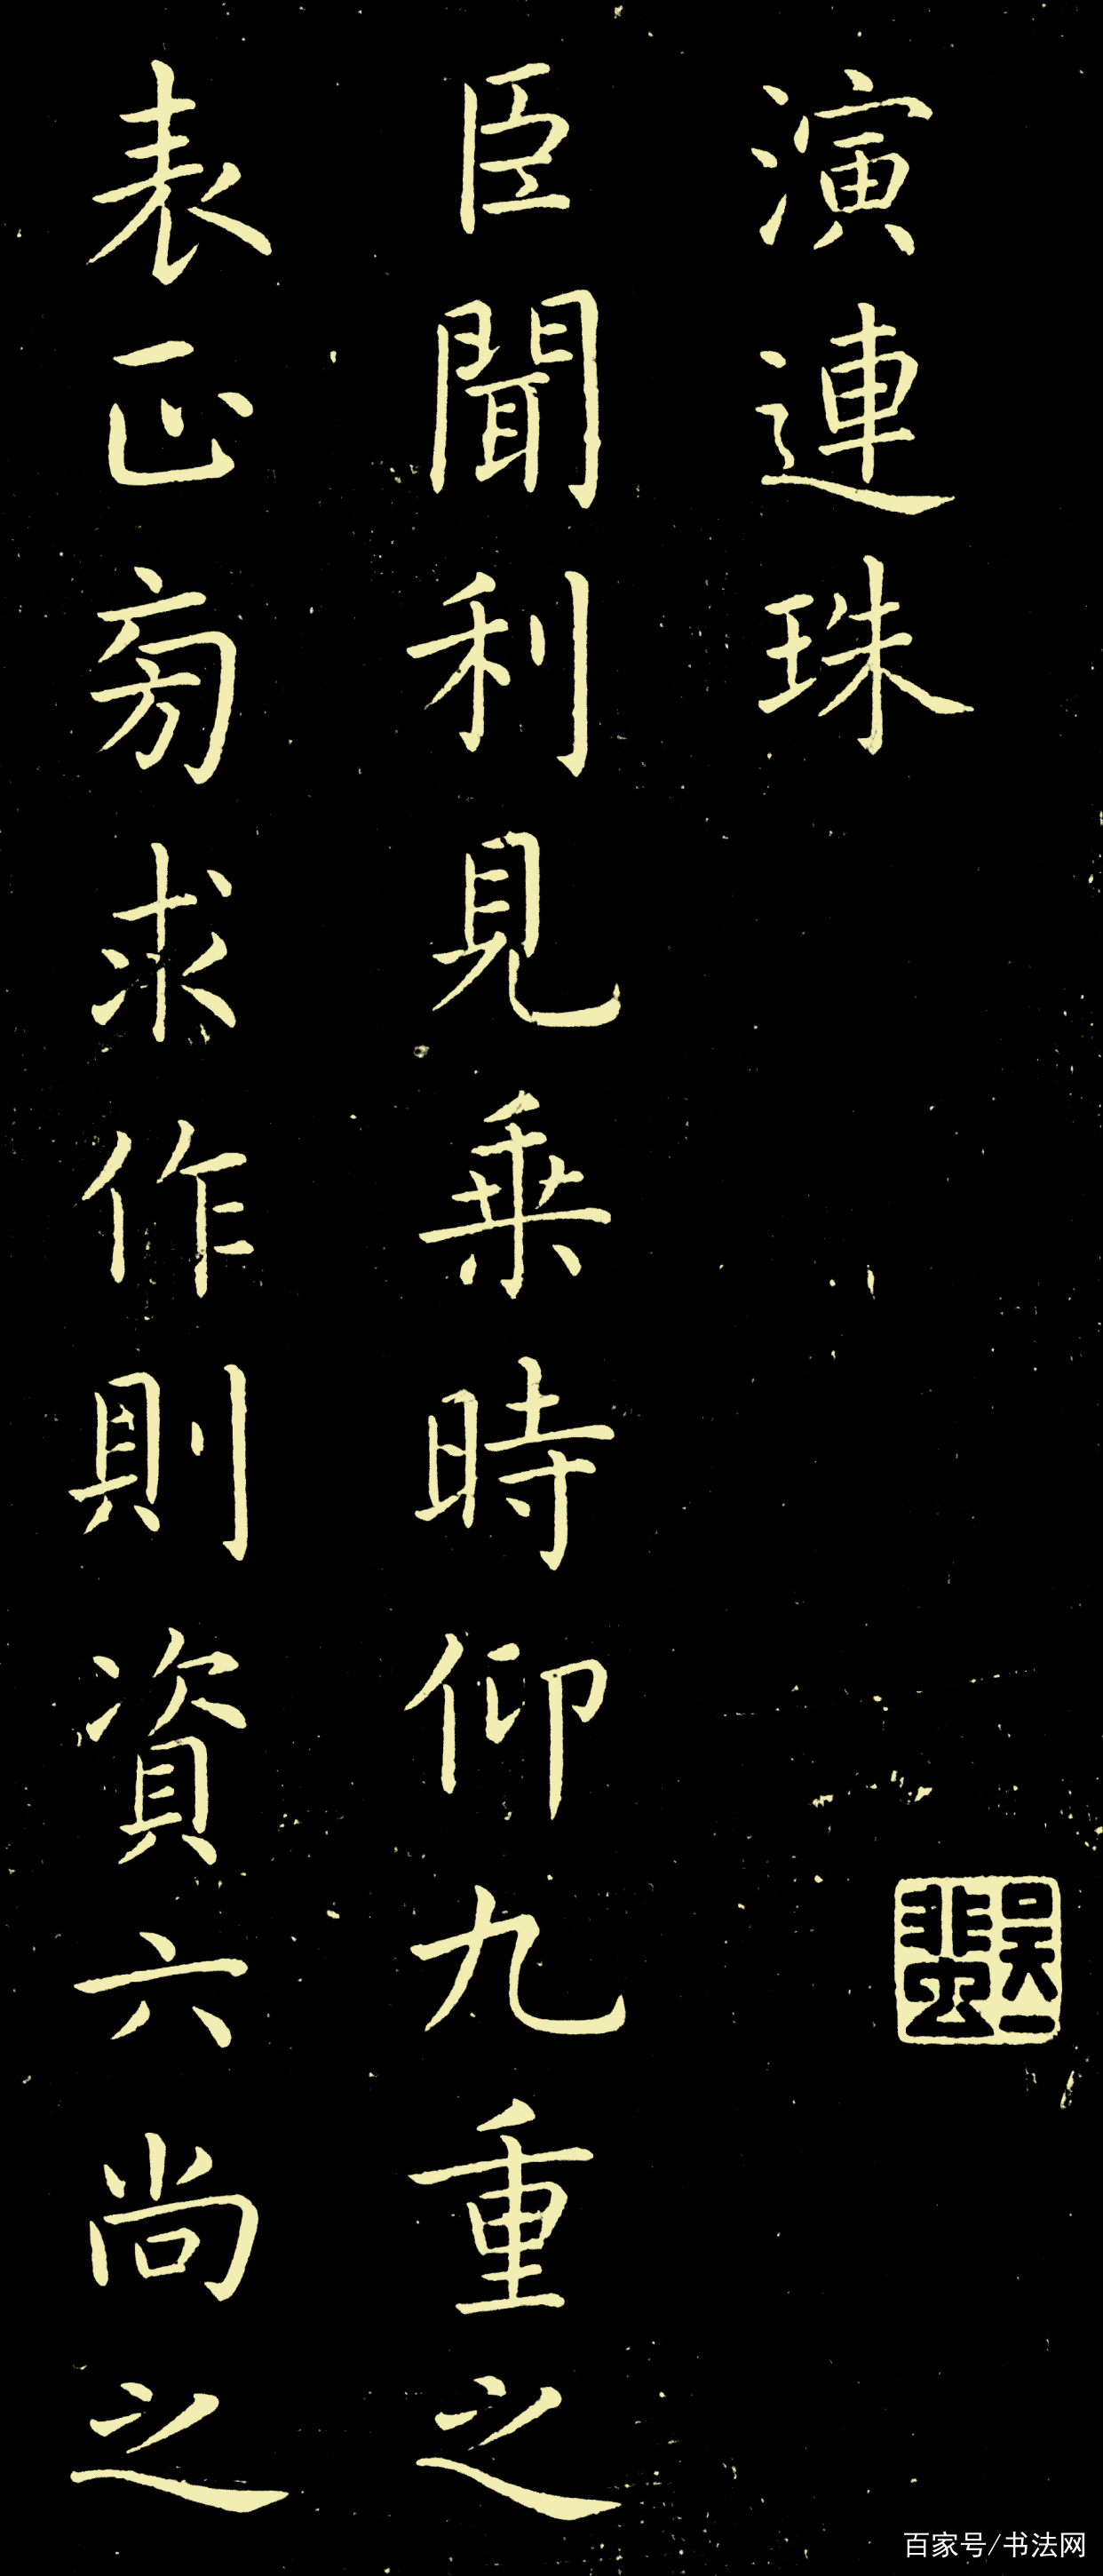 演連珠
臣聞利見乘時仰九重之
表正旁求作則資六尚之
吳一蜚
百家号/书法网